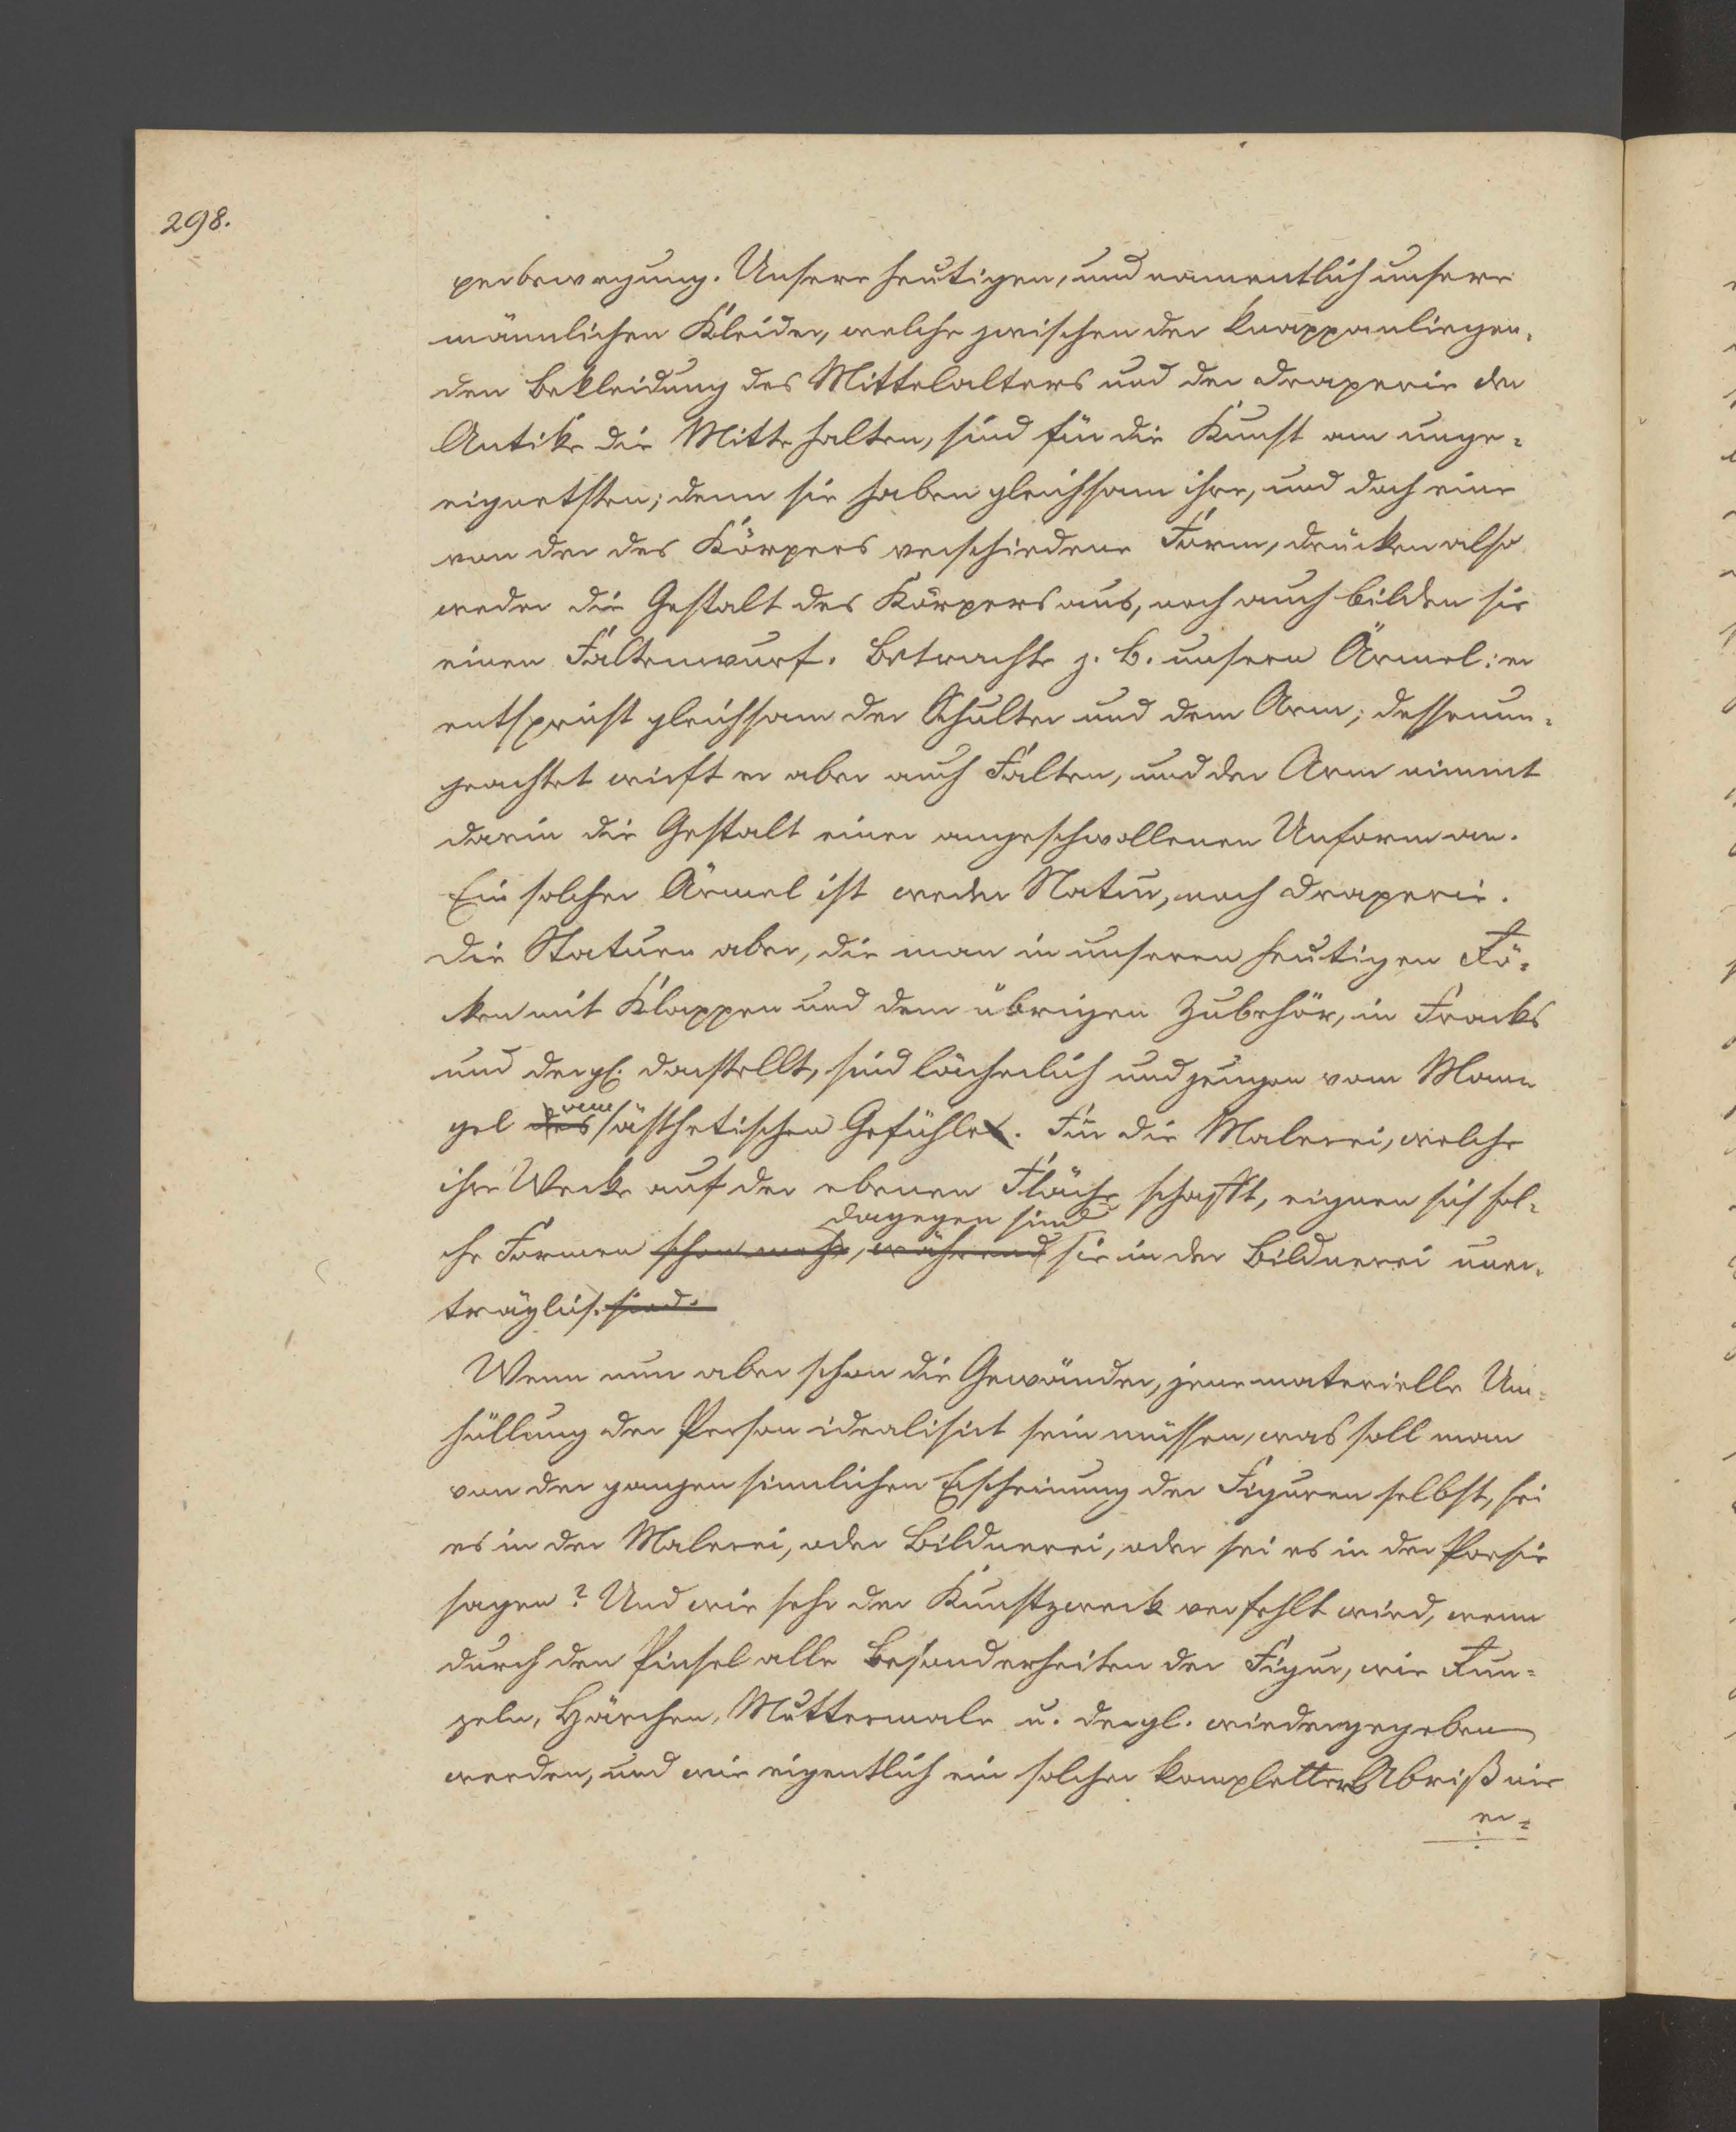 298.
perbewegung. Unsere heutigen, und namentlich unsere
männlichen Kleider, welche zwischen der knappanliegen-
den Bekleidung des Mittelalters und der Draperie der
Antike die Mitte halten, sind für die Kunst am unge-
eignetsten; denn sie haben gleichsam ihre, und doch eine
von der des Körpers verschiedene Form, drücken also
weder die Gestalt des Körpers aus, noch auch bilden sie
einen Faltenwurf. Betrachte z. B. unsern Ärmel: er
entspricht gleichsam der Schulter und dem Arm; dessenun-
geachtet wirft er aber auch Falten, und der Arm nimmt
darin die Gestalt einer angeschwollenen Unform an.
Ein solcher Ärmel ist weder Natur, noch Draperie.
Die Statuen aber, die man in unseren heutigen Rö-
cken mit Klappen und dem übrigen Zubehör, in Fracks
und dergl. darstellt, sind lächerlich und zeugen vom Man-
gel des ästhetischen Gefühles. Für die Malerei, welche
ihre Werke auf der ebenen Fläche schafft, eignen sich sol-
dagegen sind
che Formen schon mehr, während sie in der Bildnerei uner-
träglich. sind.
Wenn nun aber schon die Gewänder, jene materielle Um-
hüllung der Person idealisirt sein müssen, was soll man
von der ganzen sinnlichen Erscheinung der Figuren selbst, sei
es in der Malerei, oder Bildnerei, oder sei es in der Poesie
sagen? Und wie sehr der Kunstzweck verfehlt wird, wenn
durch den Pinsel alle Besonderheiten der Figur, wie Run-
zeln, Härchen, Muttermale u. dergl. wiedergegeben
werden, und wie eigentlich ein solcher kompletter Abriß nie
er-